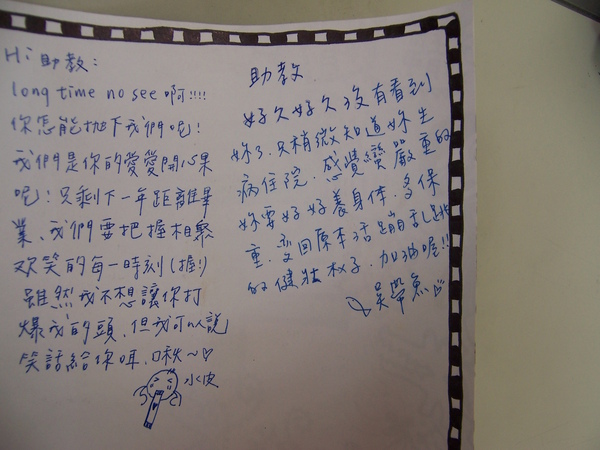 Hi 助教：
long time no see 啊!!!!
你怎能拋下我們呢!
我們是你的愛愛開心果
呢!只剩下一年距離畢
業、我們要把握相聚
欢笑的每一時刻(握!)
雖然我不想讓你打
爆我的頭,但我可以說
笑話給你听,口啾~♡
水皮
助教
好久好久沒有看到
妳了.只稍微知道妳生
病住院.感覺蠻嚴重的
妳要好好養身体.多保
重.变回原本活蹦乱跳
的健壯女子.加油喔!!